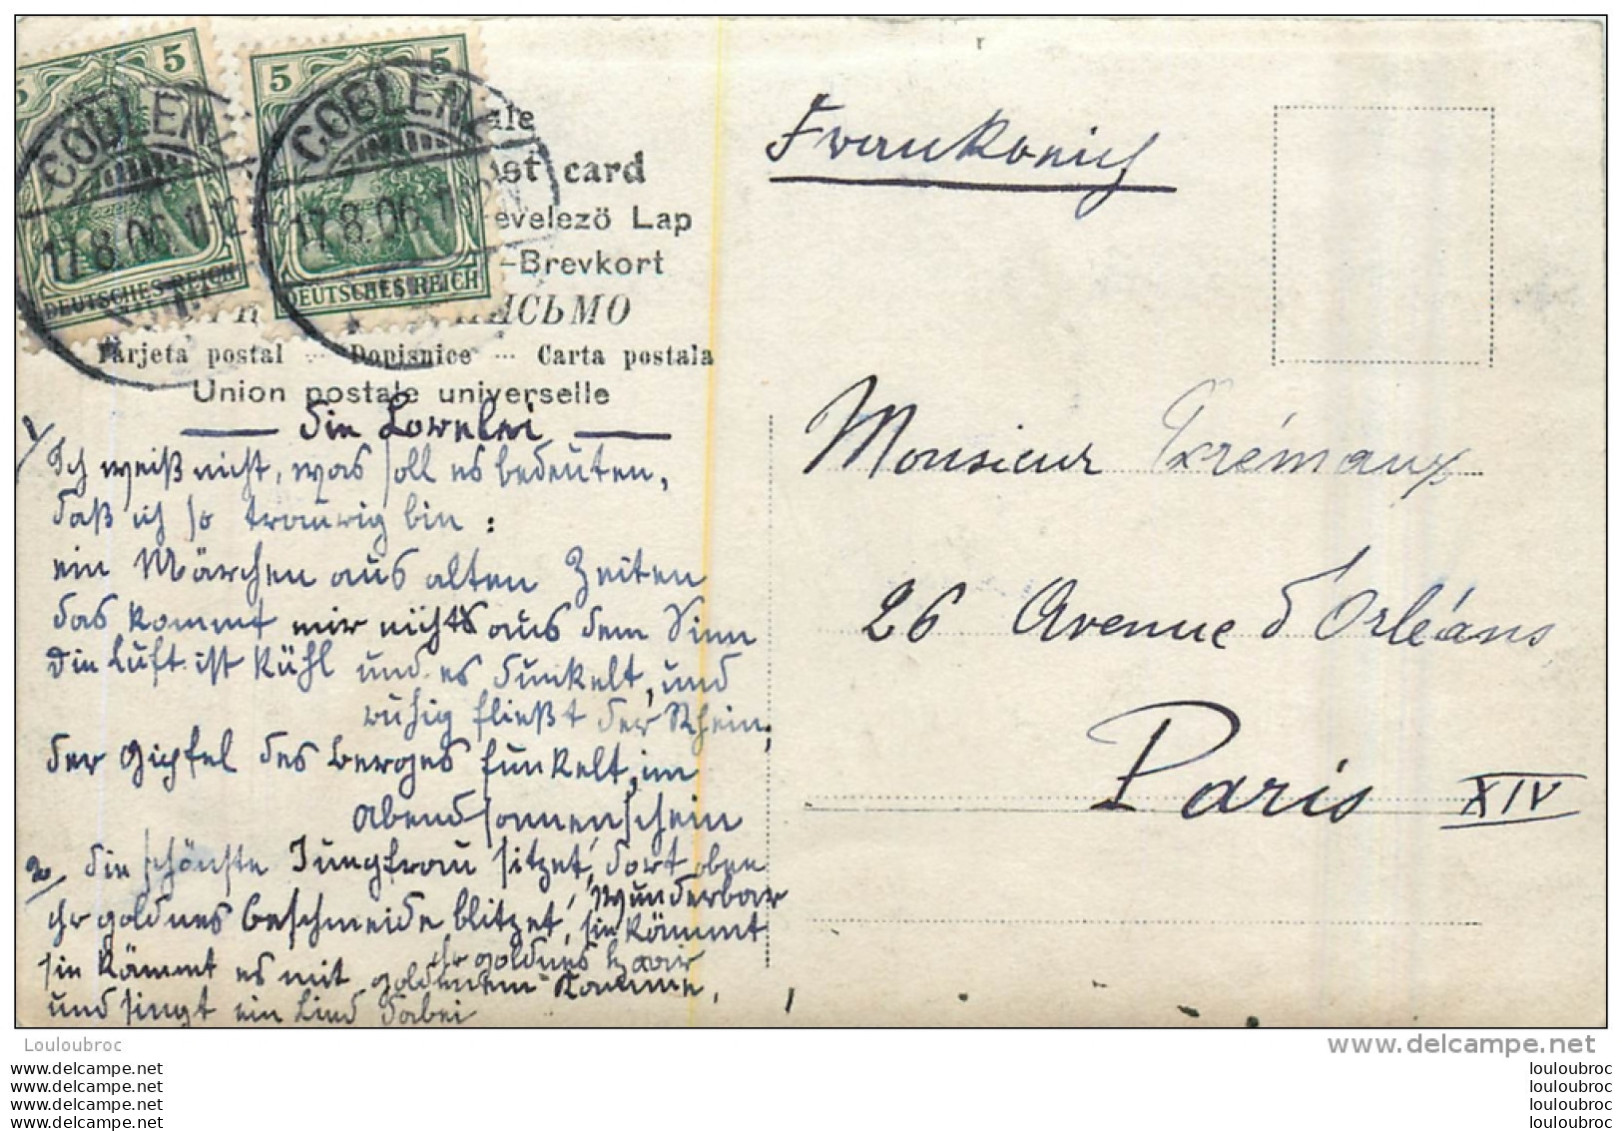 5 5
COBLENZ
17.8.06.11-12
DEUTSCHES REICH
5 5
COBLENZ
17.8.06.1
DEUTSCHES REICH
ale
st card
evelező Lap
–Brevkort
ПИСЬМО
Tarjeta postal — Dopisnice — Carta postala
Union postale universelle
Frankreich
Die Lorelei
1/ Ich weiß nicht, was soll es bedeuten,
daß ich so traurig bin:
ein Märchen aus alten Zeiten
das kommt mir nicht aus dem Sinn
Die Luft ist kühl und es dunkelt, und
ruhig fließt der Rhein,
der Gipfel des Berges funkelt, im
Abendsonnenschein
2/ die schönste Jungfrau sitzet, dort oben
wunderbar
ihr goldnes Geschmeide blitzet, sie kämmt
ihr goldnes Haar
sie kämmt es mit goldenem Kamme,
und singt ein Lied dabei
Monsieur Trémaux
26 Avenue d'Orléans
Paris XIV
Louloubroc
www.delcampe.net
www.delcampe.net
www.delcampe.net
www.delcampe.net
www.delcampe.net
louloubroc
louloubroc
louloubroc
louloubroc